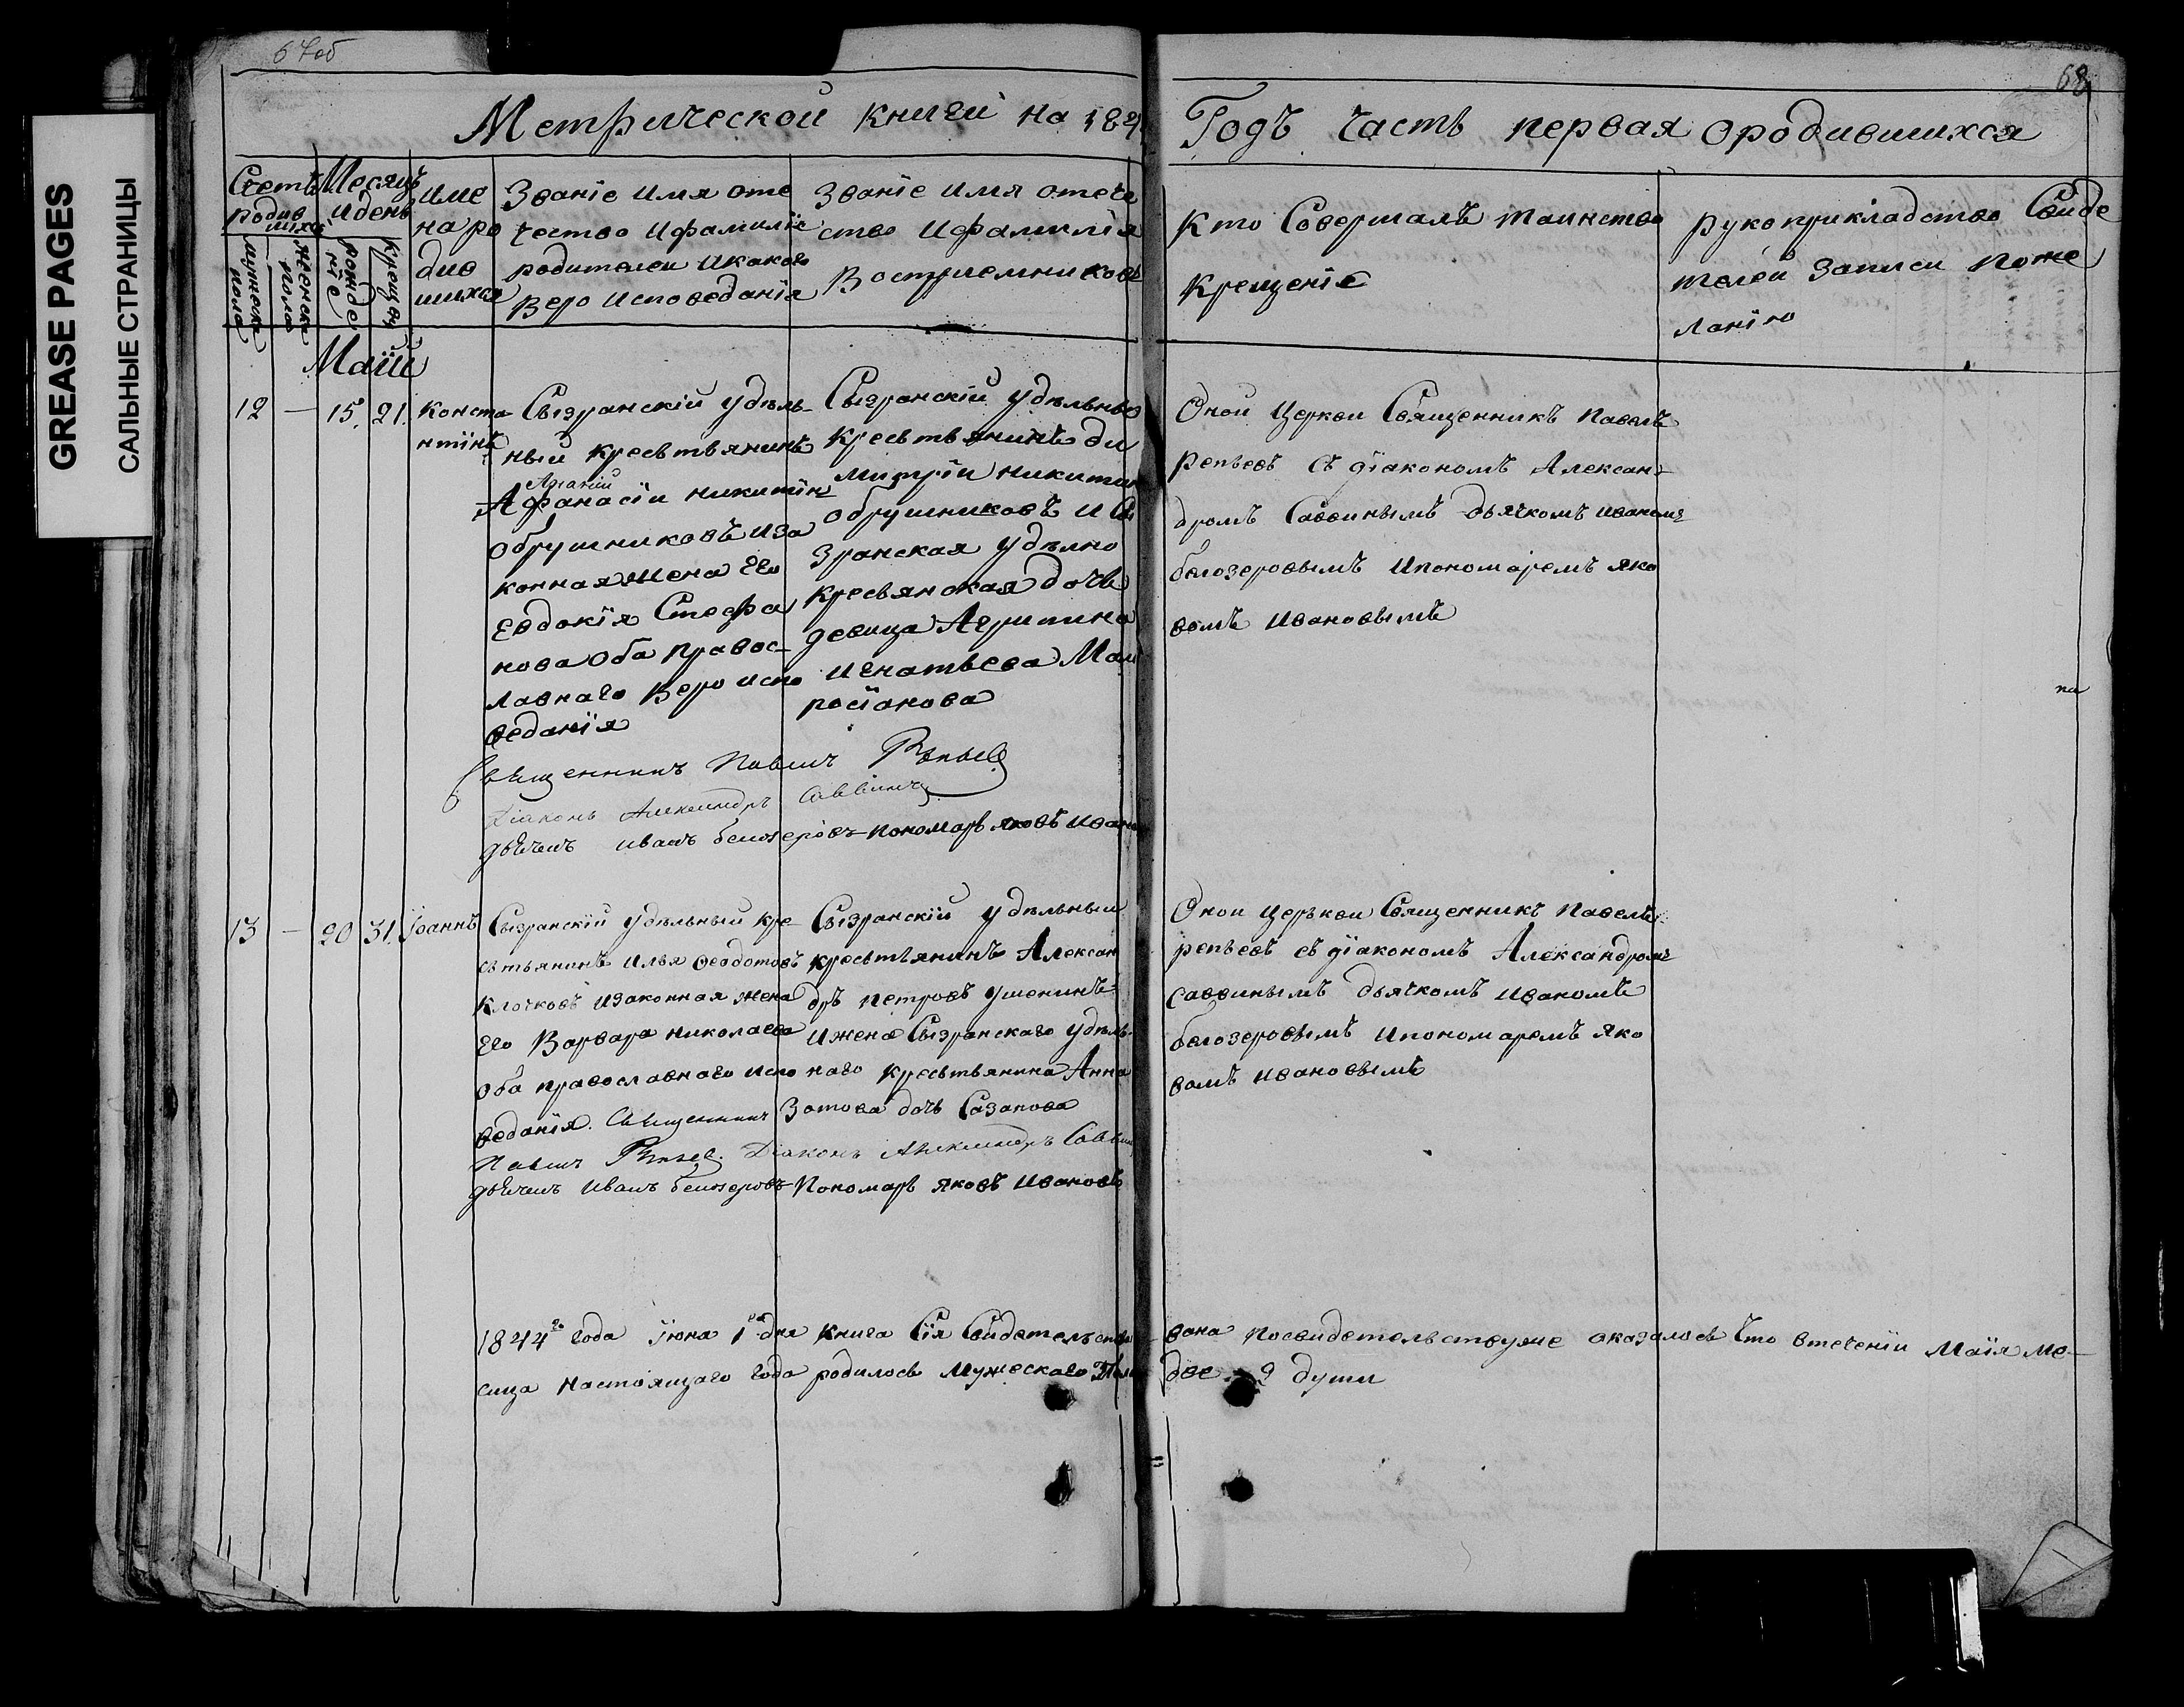 GREASE PAGES
САЛЬНЫЕ СТРАНИЦЫ
67об
68
Метрической книги на 184
Годъ часть первая ородившихся
Счетъ родив шихся
мужеска пола
женска пола
Месяцъ иденъ
рожде ніе
крещен
име на ро див шихся
Званіе имя оте чество ифамилія родителеи икакого Веро исповеданія
Званіе имя отече ство ифамилія Воспріемниковъ
Кто Совершалъ таинство крещеніе
рукоприкладство Свиде телей записи поже ланію
Маіи
12 — 15. 21. Конста нтинъ
Сызранскій удѣль-
ныи кресьтьянинъ
Ананіи
Афанасіи никитин
обрушниковъ иза
конная жена Его
Евдокія Стефа
нова оба Правос-
лавнаго Веро испо
веданія
Сызранскій удѣльны
кресьтьянинъ ди
митріи никитин
обрушниковъ и Сы
зранская удѣлно
кресьянская дочь
девица Агрипина
игнатьева Мал
росіанова
Священникъ Павелъ Репьев
Діаконъ Александръ Саввинъ
дьячекъ иванъ белозеровъ пономарь яковъ Иван
Онои церкви Священникъ павелъ
репьевъ съ діакономъ Алексан-
дромъ Саввинымъ дьячкомъ иваномъ
белозеровымъ ипономаремъ яко
вомъ ивановымъ
на
13 — 20 31. Іоаннъ
Сызранскій удѣльный кре-
сьтьянинъ илья феодотовъ
Клочковъ изаконная жена
Его Варвара николаева
оба православнаго испо
веданія. Священникъ
Сызранскій удѣльныи
кресьтьянинъ Алексан
дръ петровъ ушенинъ
ижена Сызранскаго удѣль-
наго кресьтьянина Анна
Зотова дочь Сазанова
Павелъ Репьев. Діаконъ Александръ Саввин
дьячекъ Иванъ белозеровъ Пономарь яковъ Ивановъ
Онои церькви Священникъ павелъ
репьевъ съ діакономъ Александромъ
саввинымъ дьячкомъ иваномъ
белозеровымъ ипономаремъ яко
вомъ ивановымъ
1844го года іюня 1го дня книга Сія Свидетельство
вана посвидетельствуме оказалось что втеченіи Маія ме-
сица настоящаго года родилось мужескаго Пола
две 2 души